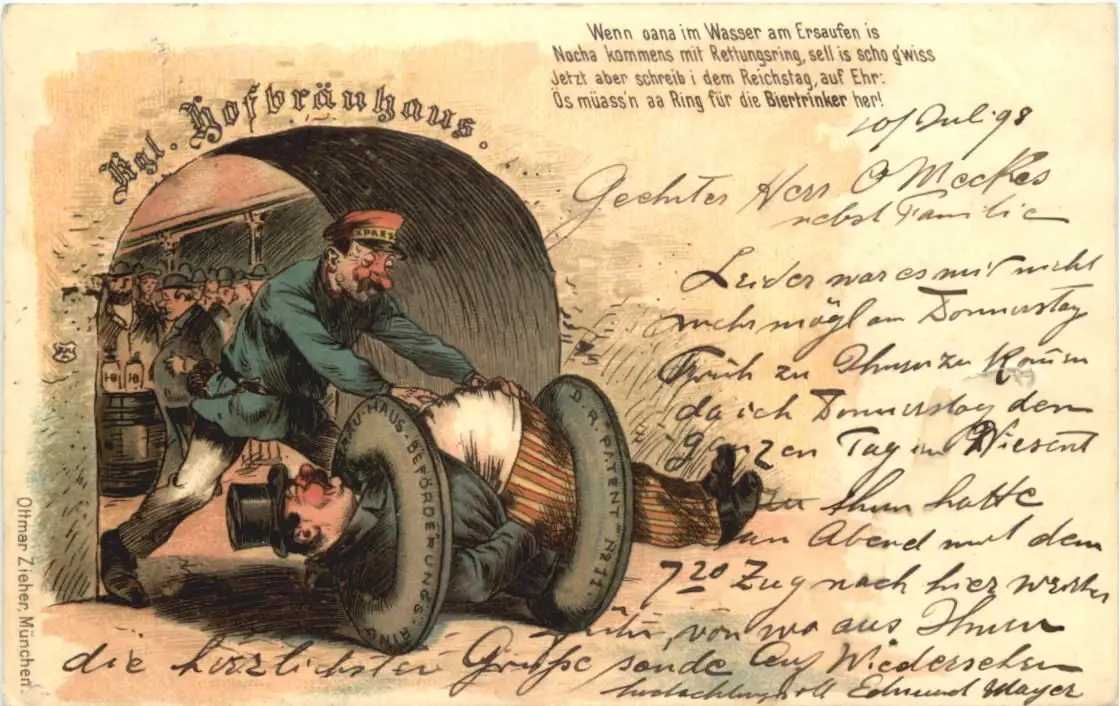 Wenn oana im Wasser am Ersaufen is
Nocha kommens mit Rettungsring, sell is scho g'wiss
Jetzt aber schreib i dem Reichstag, auf Ehr:
Ös müass'n aa Ring für die Biertrinker her!
Kgl. Hofbräuhaus.
EXPRES
HB HB
BRÄU-HAUS-BEFÖRDERUNGS "RING
D. R. "PATENT" No 11.
Ottmar Zieher, München.
10/Jul. 98
Geehrter Herr O Meckes
nebst Familie
Leider war es mir nicht
mehr mögl am Donnerstag
Früh zu Ihnen zu kommen
da ich Donnerstag den
ganzen Tag in Wiesent
zu thun hatte
am Abend mit dem
7 20 Zug nach hier weiter
von wo aus Ihnen
die herzlichsten Grüße sende Auf Wiedersehen
hochachtungsvoll Edmund Mayer